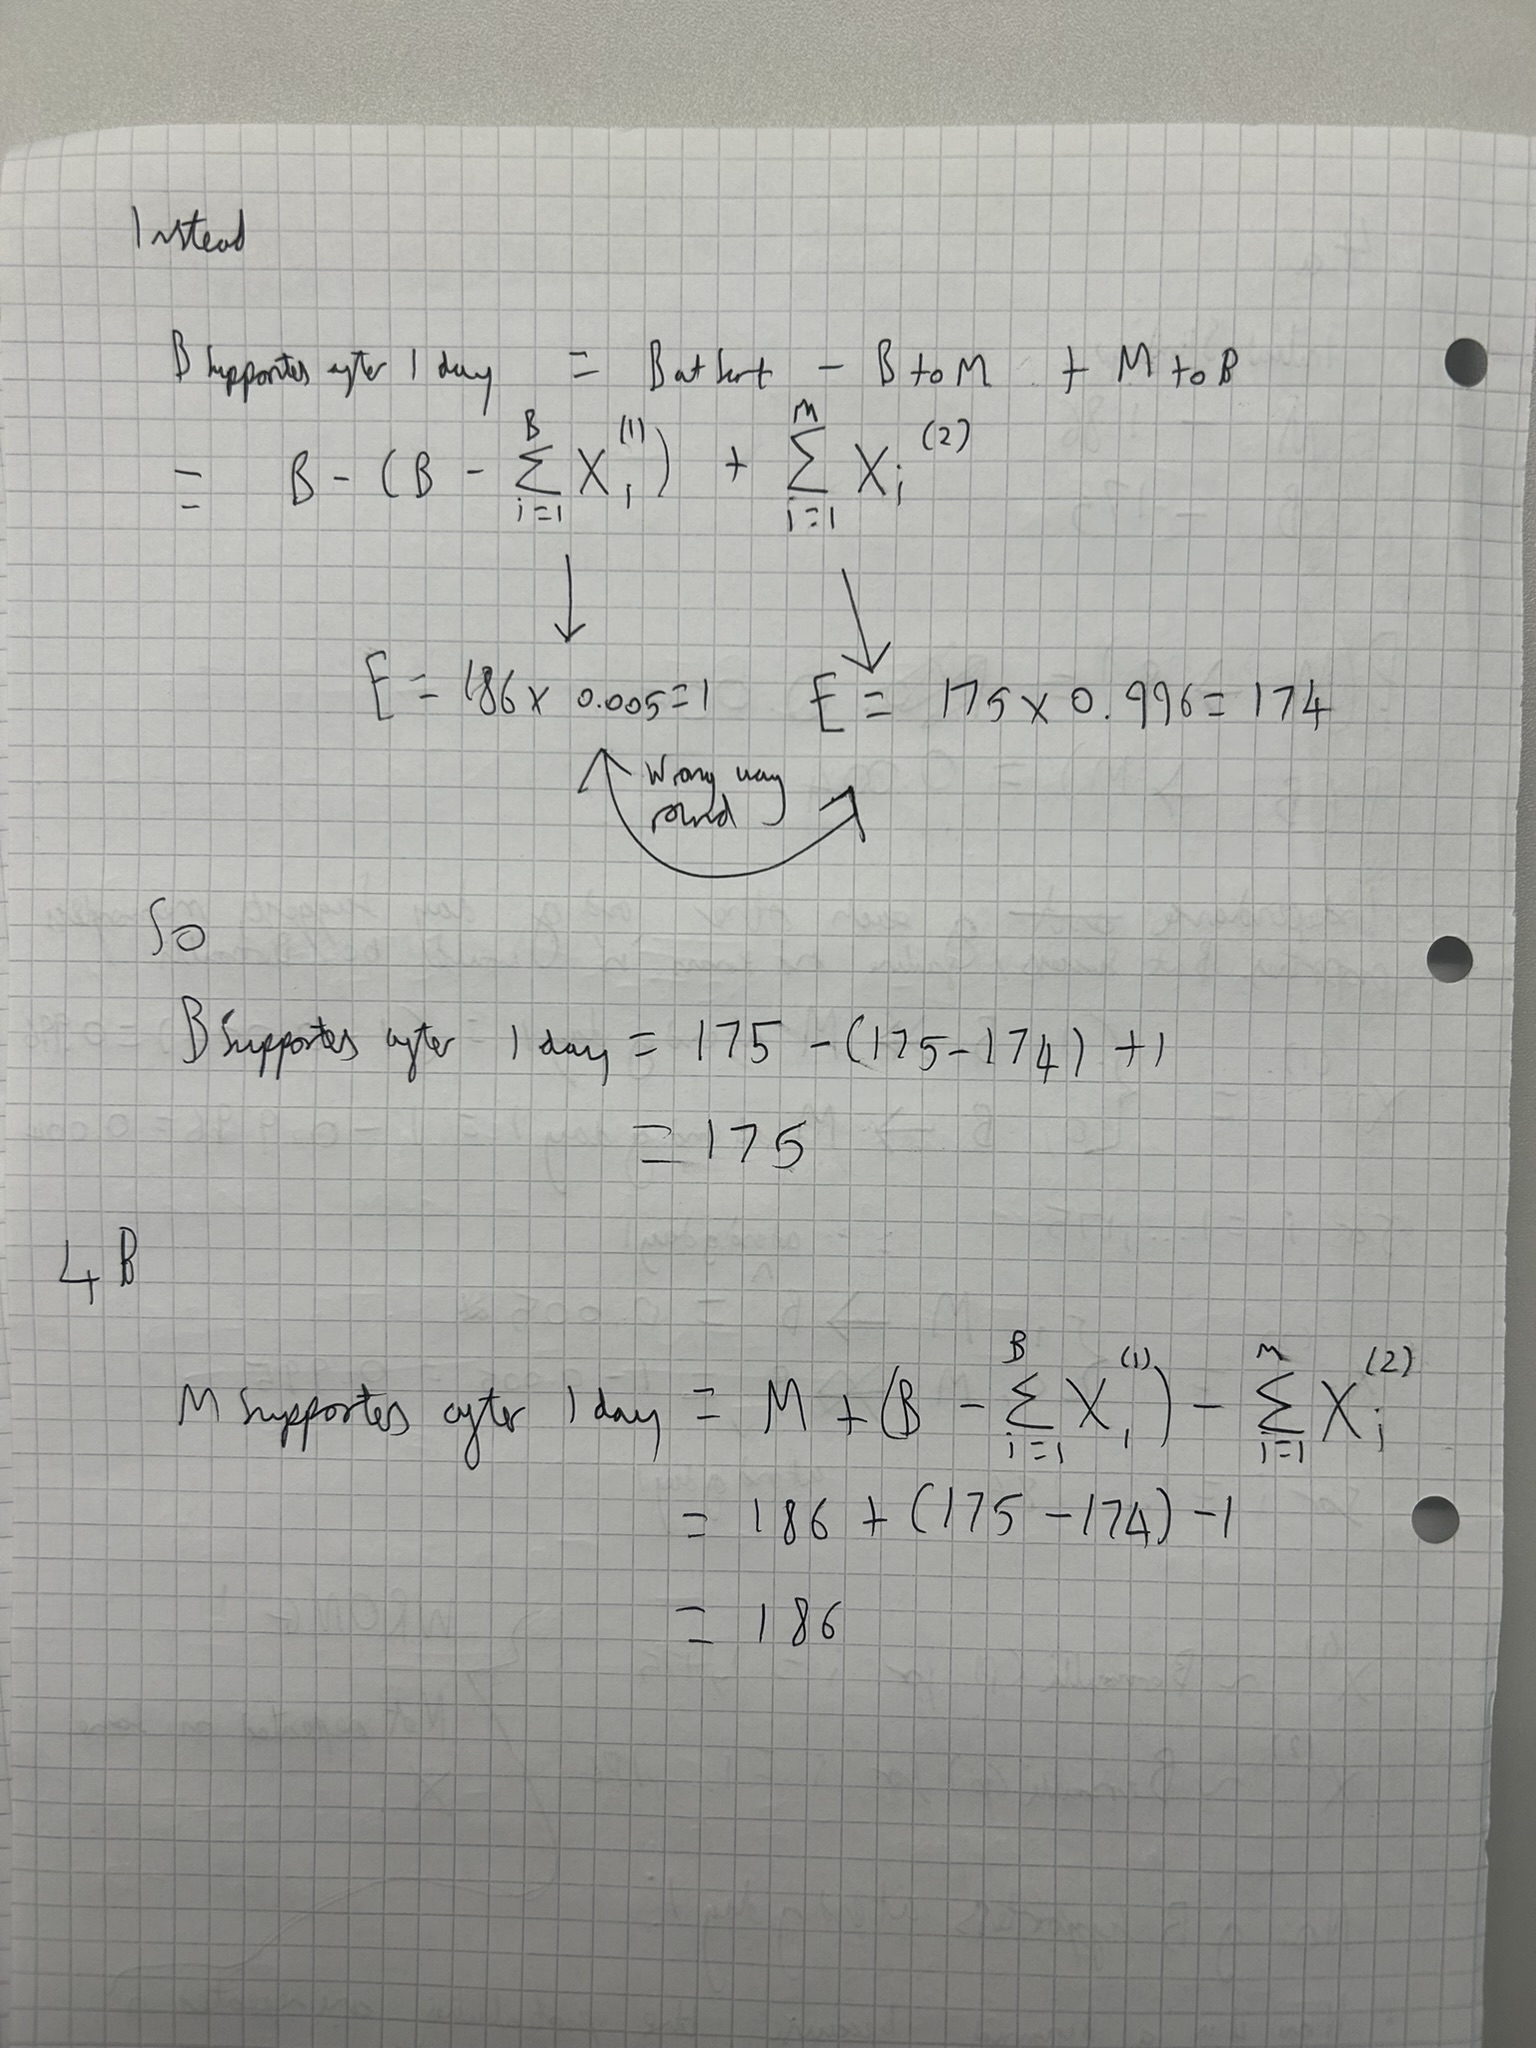 Instead
B supporters after 1 day = B at start - B to M + M to B
= B - (B - \sum_{i=1}^{B} X_i^{(1)}) + \sum_{i=1}^{M} X_i^{(2)}
E = 186 x 0.005 = 1 E = 175 x 0.996 = 174
Wrong way
round
So
B supporters after 1 day = 175 - (175 - 174) + 1
= 175
4 B
M supporters after 1 day = M + (B - \sum_{i=1}^{B} X_i^{(1)}) - \sum_{i=1}^{M} X_i^{(2)}
= 186 + (175 - 174) - 1
= 186